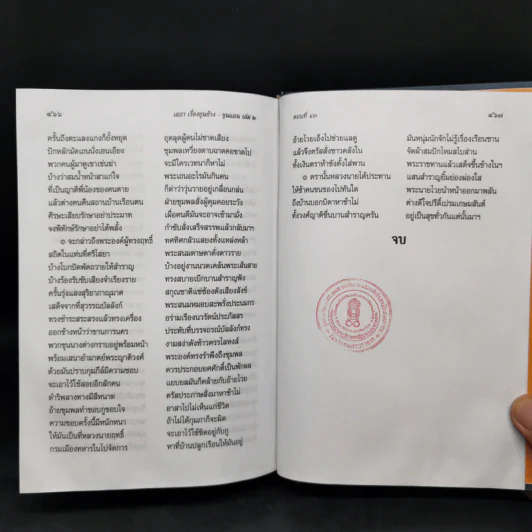 ๔๖๖
เสภา เรื่องขุนช้าง - ขุนแผน เล่ม ๒
ครั้นถึงตะแลงแกงก็ยั้งหยุด อุตลุดผู้คนไม่ขาดเสียง
ปักหลักมัดเถนนั่งเอนเอียง ชุมพลเหวี่ยงดาบฉาดคอขาดไป
พวกคนผู้มาดูเขาเซ่นฆ่า จะมีใครเวทนาก็หาไม่
บ้างว่าสมน้ำหน้าสาแก่ใจ พระเถนอะไรมันเกินคน
ที่เป็นญาติพี่น้องของคนตาย ก็ด่าว่าวุ่นวายอยู่เกลื่อนกล่น
แล้วต่างคนคืนสถานบ้านเรือนตน ฝ่ายชุมพลสั่งผู้คุมคอยระวัง
ศีรษะเสียบรักษาอย่าประมาท เผื่อคนดีมันจะอาจเข้ามามั่ง
จงพิทักษ์รักษาอย่าได้พลั้ง กำชับสั่งเสร็จสรรพแล้วกลับมาฯ
๏ จะกล่าวถึงพระองค์ผู้ทรงฤทธิ์ ทศทิศกลัวแสยงทั้งแหล่งหล้า
สถิตในแท่นที่ศรีไสยา พระสนมดาษดาดั่งดาวราย
บ้างโบกปัดพัดถวายให้สำราญ บ้างอยู่งานนวดเคล้นพระเส้นสาย
บ้างร้องรับขับเสียงจำเรียงราย ทรงสบายเบิกบานสำราญฟัง
ครั้นรุ่งแสงสุริยาภาณุมาศ สกุณชาติแซ่ซ้องดังเสียงสังข์
เสด็จจากที่สุวรรณบัลลังก์ พระสนมหมอบสะพรั่งประนมกร
ทรงชำระสระสรงแล้วทรงเครื่อง อร่ามเรืองนวรัตน์ประภัสสร
ออกข้างหน้าว่าขานการนคร ประทับที่บรรจถรณ์บัลลังก์ทรง
พวกขุนนางต่างกราบอยู่พร้อมหน้า งามสง่าดังท้าวครรไลหงส์
พร้อมเสนาอำมาตย์พระญาติวงศ์ พระองค์ทรงรำพึงถึงชุมพล
ด้วยมันปราบกุมภีล์มีความชอบ ควรประกอบยศศักดิ์เป็นพักผล
จะเอาไว้ใช้สอยอีกสักคน แยบยลมันก็คล้ายกับอ้ายไวย
ดำริพลางทางมีสีหนาท ตรัสประภาษสั่งมาหาช้าไม่
อ้ายชุมพลทำชอบกูชอบใจ อาสาไปไม่เห็นแก่ชีวิต
ความชอบครั้งนี้มีหนักหนา ถ้าไม่ได้กุมภาก็จะผิด
ให้มันเป็นที่หลวงนายฤทธิ์ จะเอาไว้ใช้ชิดอยู่กับกู
กรมเมืองทหารในไปจัดการ หาที่บ้านปลูกเรือนให้มันอยู่
ตอนที่ ๔๓
๔๖๗
อ้ายไวยเอ็งไปช่วยแลดู มันหนุ่มนักจักไม่รู้เรื่องเรือนชาน
แล้วจึงตรัสสั่งชาวคลังใน จัดผ้าสมปักไหมสไบส่าน
ทั้งเงินตราห้าชั่งตั้งใส่พาน พระราชทานแล้วเสด็จขึ้นข้างในฯ
๏ ครานั้นหลวงนายได้ประทาน แสนสำราญยิ้มย่องผ่องใส
ให้ช้าคนขนของไปทันใด พระนายไวยนำหน้าออกมาพลัน
ถึงบ้านบอกบิดาหาช้าไม่ ต่างดีใจปรีดิ์เปรมเกษมสันต์
ทั้งวงศ์ญาติชื่นบานสำราญครัน อยู่เป็นสุขทั่วกันแต่นั้นมาฯ
จบ